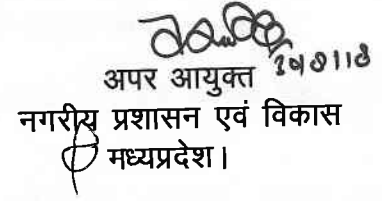 अपर आयुक्त
नगरीय प्रशासन एवं विकास
मध्यप्रदेश।